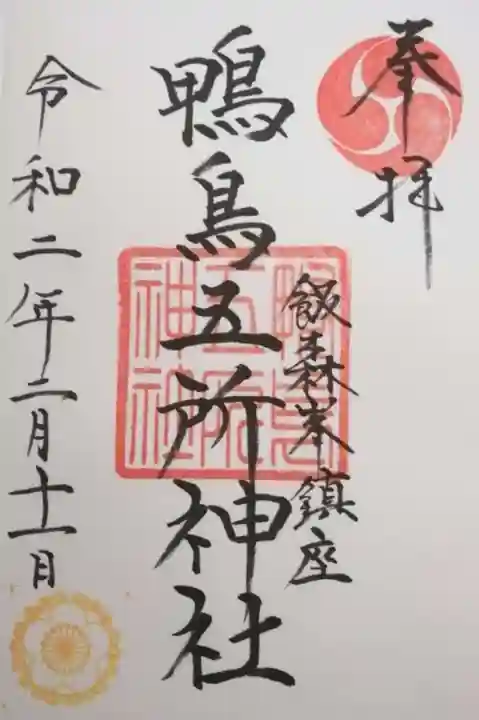 奉拝
飯森峯鎮座
鴨鳥五所神社
令和二年二月十一日
鴨鳥
五所
神社